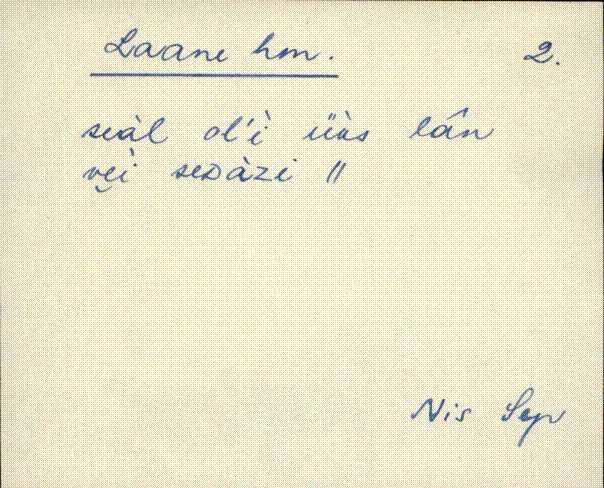 Laane hm. 2.
seàl ol'ì üùs lân
vè̮i seᴅàzi //
Nis Sep